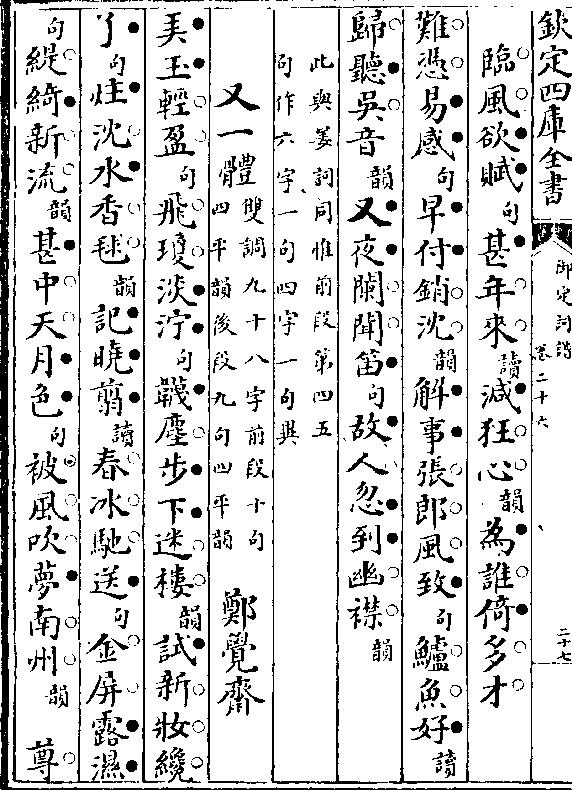 欽定四庫全書
御定詞譜
卷二十六
二十七
臨風欲賦句甚年來讀減狂心韻為誰倚多才
難憑易感句早付銷沈韻解事張郎風致句鱸魚好讀
歸聽吳音韻又夜闌聞笛句故人忽到幽襟韻
此與姜詞同惟前段第四五
句作六字一句四字一句異
又一體
雙調九十八字前段十句
四平韻後段九句四平韻
鄭覺齋
弄玉輕盈句飛瓊淡泞句韤塵步下迷樓韻試新妝纔
了句炷沈水香毬韻記曉翦讀春冰馳送句金屏露濕
句緹綺新流韻甚中天月色句被風吹夢南州韻 尊